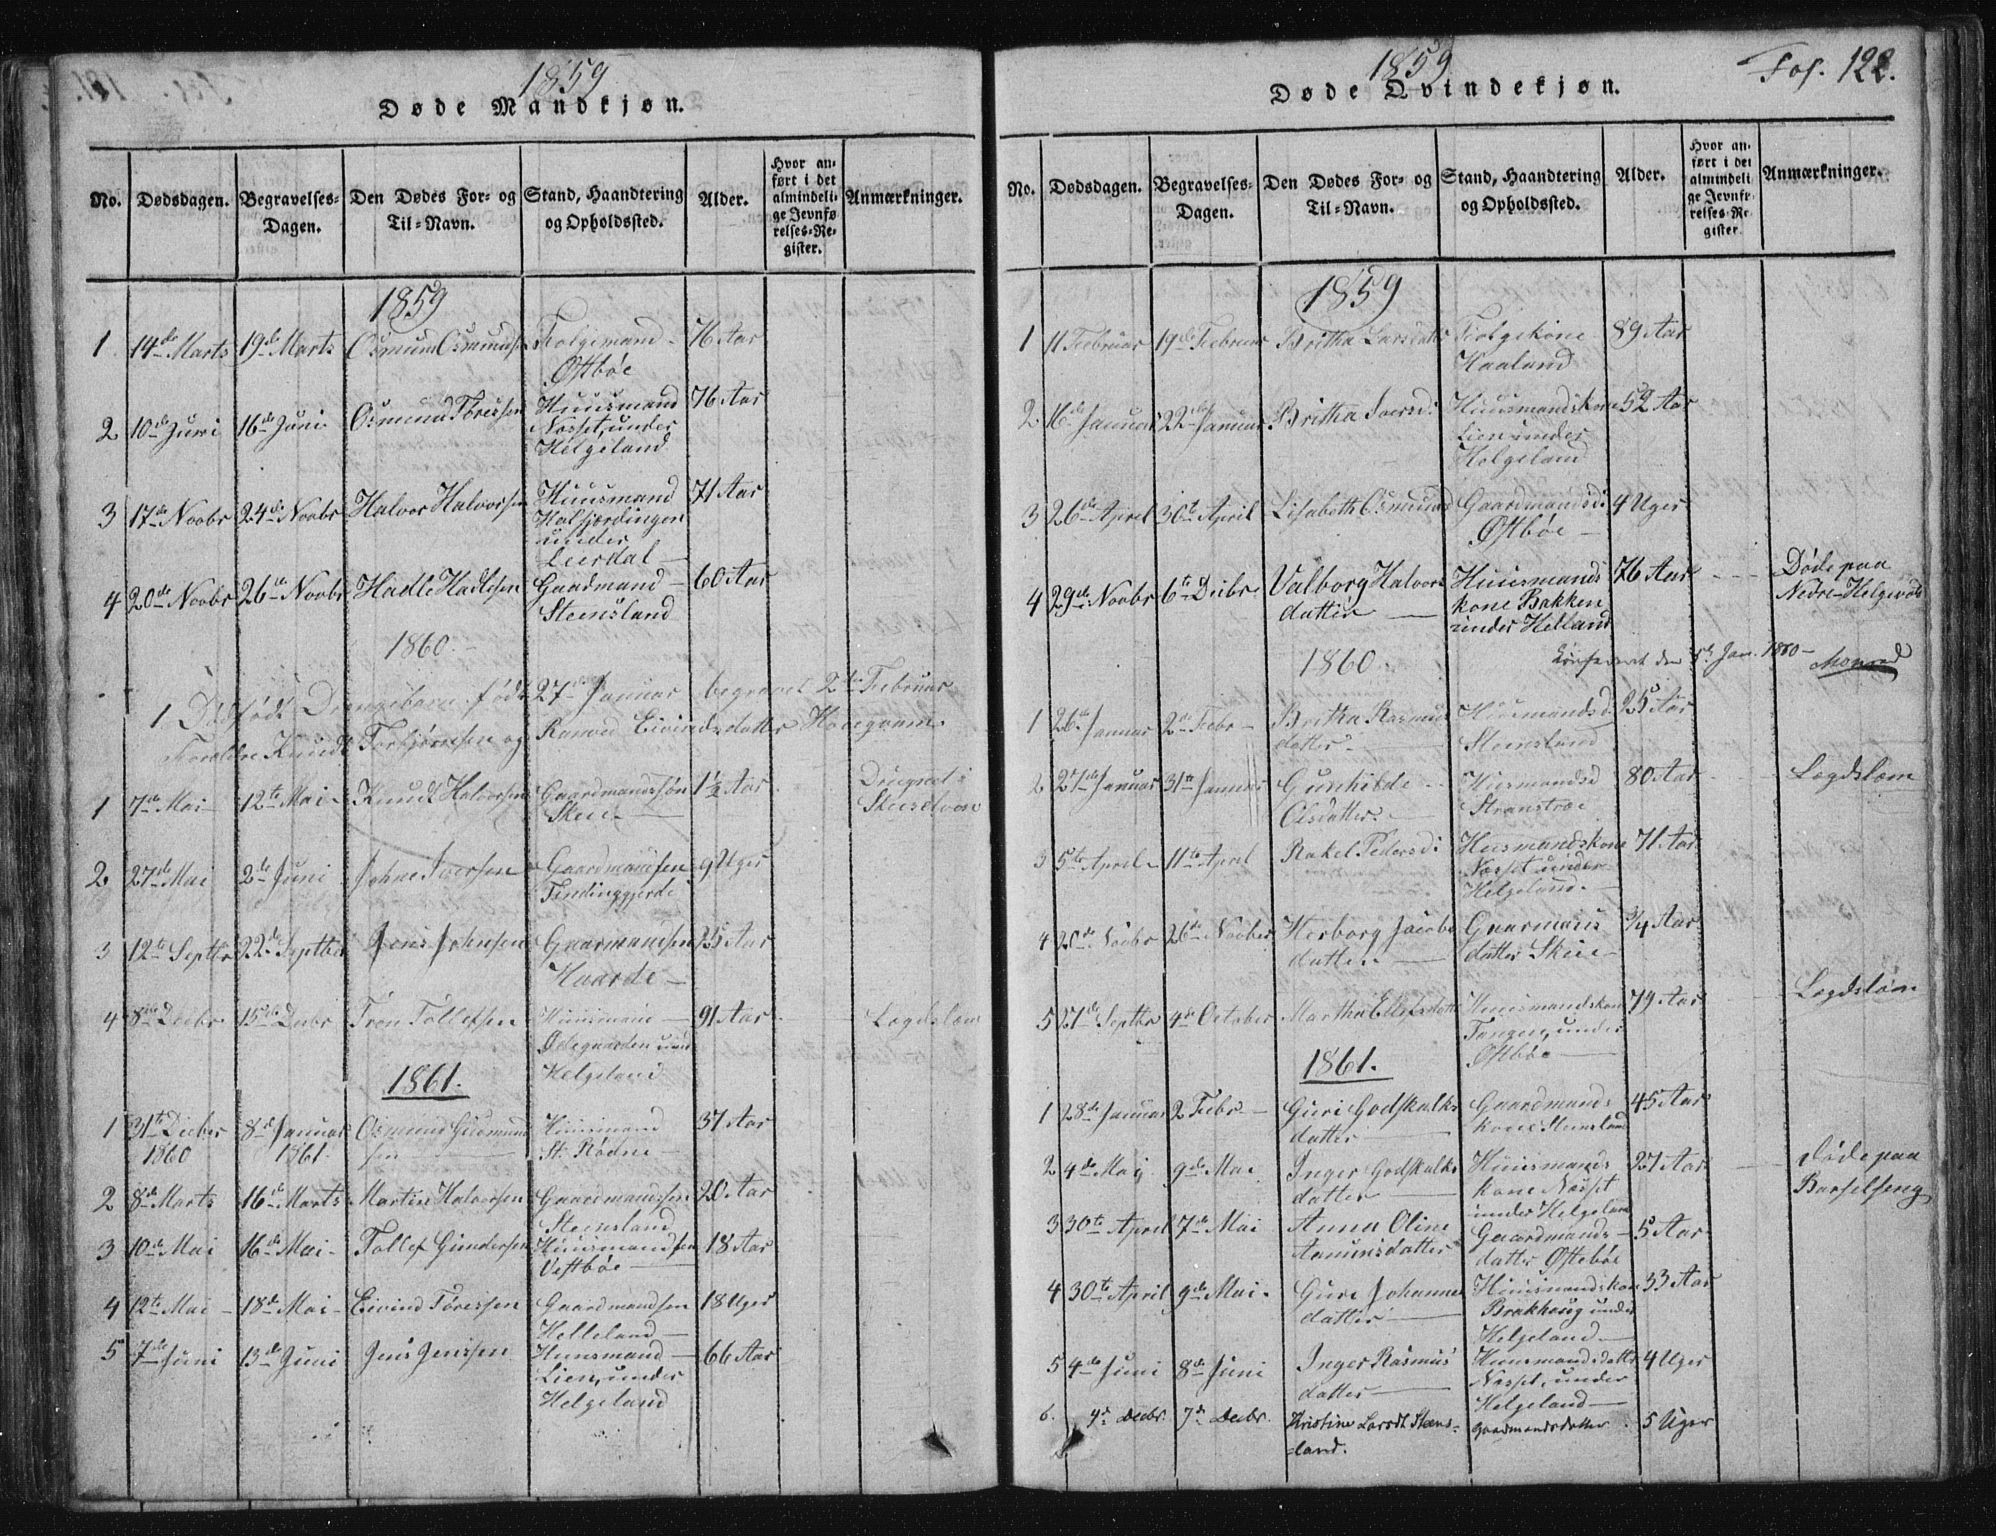 1859
Døde Mandkjøn.
No. Dødsdagen. Begravelses-Dagen. Den Dødes For- og Til-Navn. Stand, Haandtering og Opholdssted. Alder. Hvor anført i det almindelige Jevnførelses-Register. Anmærkninger.
1859
1 14de Marts 19de Marts Osmund Osmundsen Folgemand Østbøe 76 Aar
2 10de Juni 16de Juni Osmund Toressen Huusmand Nosset, under Helgeland 76 Aar
3 17de Novbr 24de Novbr Halvor Halvorsen Huusmand Halfjordingen under Leerdal 71 Aar
4 20de Novbr 26de Novbr Hadle Hadlesen Gaardmand Steensland 60 Aar
1860
1. Dødfødt Drengebarn født 27de Januar begravet 2den Februar
Forældre Knudt Torbjørnsen og Ranvei Eivindsdatter
1 7de Mai 12te Mai Knudt Halvorsen Gaardmandssøn Skeie 1½ Aar Druknet i
2 27de Mai 2den Juni Johne Iversen Gaardmandsen 9 Uger
3 12te Septbr 22de Septber Jens Johnsen Gaarmandsen Haarde 25 Aar
4 8de Decbr 15de Decbr Tron Tollefsen Huusmand Ødegaarden under Helgeland 91 Aar Lægdslem
1861.
1 31te Decber 1860 8de Januar 1861 Osmund Gudmundsen Huusmand St. Rødne 37 Aar
2 8de Marts 16de Marts Martin Halvorsen Gaardmandssen Steensland 20 Aar
3 10de Mai 16de Mai Tollef Gundersen Huusmandsen Vestbøe 18 Aar
4 12te Mai 18de Mai Eivind Toressen Gaardmandsen Helleland 18 Uger
5 7de Juni 13de Juni Jens Jenssen Huusmand Lien, under Helgeland 66 Aar
Fol. 122.
1859
Døde Qvindekjøn.
No. Dødsdagen. Begravelses-Dagen. Den Dødes For- og Til-Navn. Stand, Haandtering og Opholdssted. Alder. Hvor anført i det almindelige Jevnførelses-Register. Anmærkninger.
1859
1 11 Februar 19de Februar Britha Larsdatter Folgekone Haaland 89 Aar
2 16de Januar 22de Januar Britha Iversd: Huusmandskone Lien under Helgeland 52 Aar
3 26de April 30te April Lisabeth Osmund Gaardmandsd: Østbøe 4 Uger
4 29de Novbr 6te Decbr Valborg Halvorsdatter Huusmandskone Bakken under Helland 76 Aar Døde paa Nedre-
Konfereret den 5te Jan. 1860
1860
1 26de Januar 2den Febr Britha Rasmusdatter Huusmandsd Steinsland 25 Aar
2 27de Januar 31te Januar Gunhilde Olsdatter Huusmandsd 80 Aar Lægdslem
3 5te April 11te April Rakel Pedersd: Huusmandskone Nosset under Helgeland 71 Aar
4 20de Novbr 26de Novber Herborg Jacobsdatter Gaarmansdatter Skeie 3/4 Aar
5 27de Septbr 4de October Martha Ellefsdatter Huusmandskone Tangen, under Østbøe 79 Aar Lægdslem
1861.
1 28de Januar 2 Febr Guri Godskalksdatter Gaardmandskone Steinsland 45 Aar
2 4de Maj 9de Mai Inger Godskalksdatter Huusmandskone Nosset under Helgeland 27 Aar døde paa Barselseng
3 30te April 7de Mai Anna Oline Aamunsdatter Gaardmandsdatter Østebøe 5 Aar
4 30te April 9de Mai Guri Johannesdatter Huusmandskone Brakhaug under Helgeland 33 Aar
5 4de Juni 8de Juni Inger Rasmusdatter Huusmandsdatter Nosset, under Helgeland 4 Uger
6. 4de Decbr. 7de Decbr. Kristine Larsdt Steensland. gaardmandsdatter 5 Uger